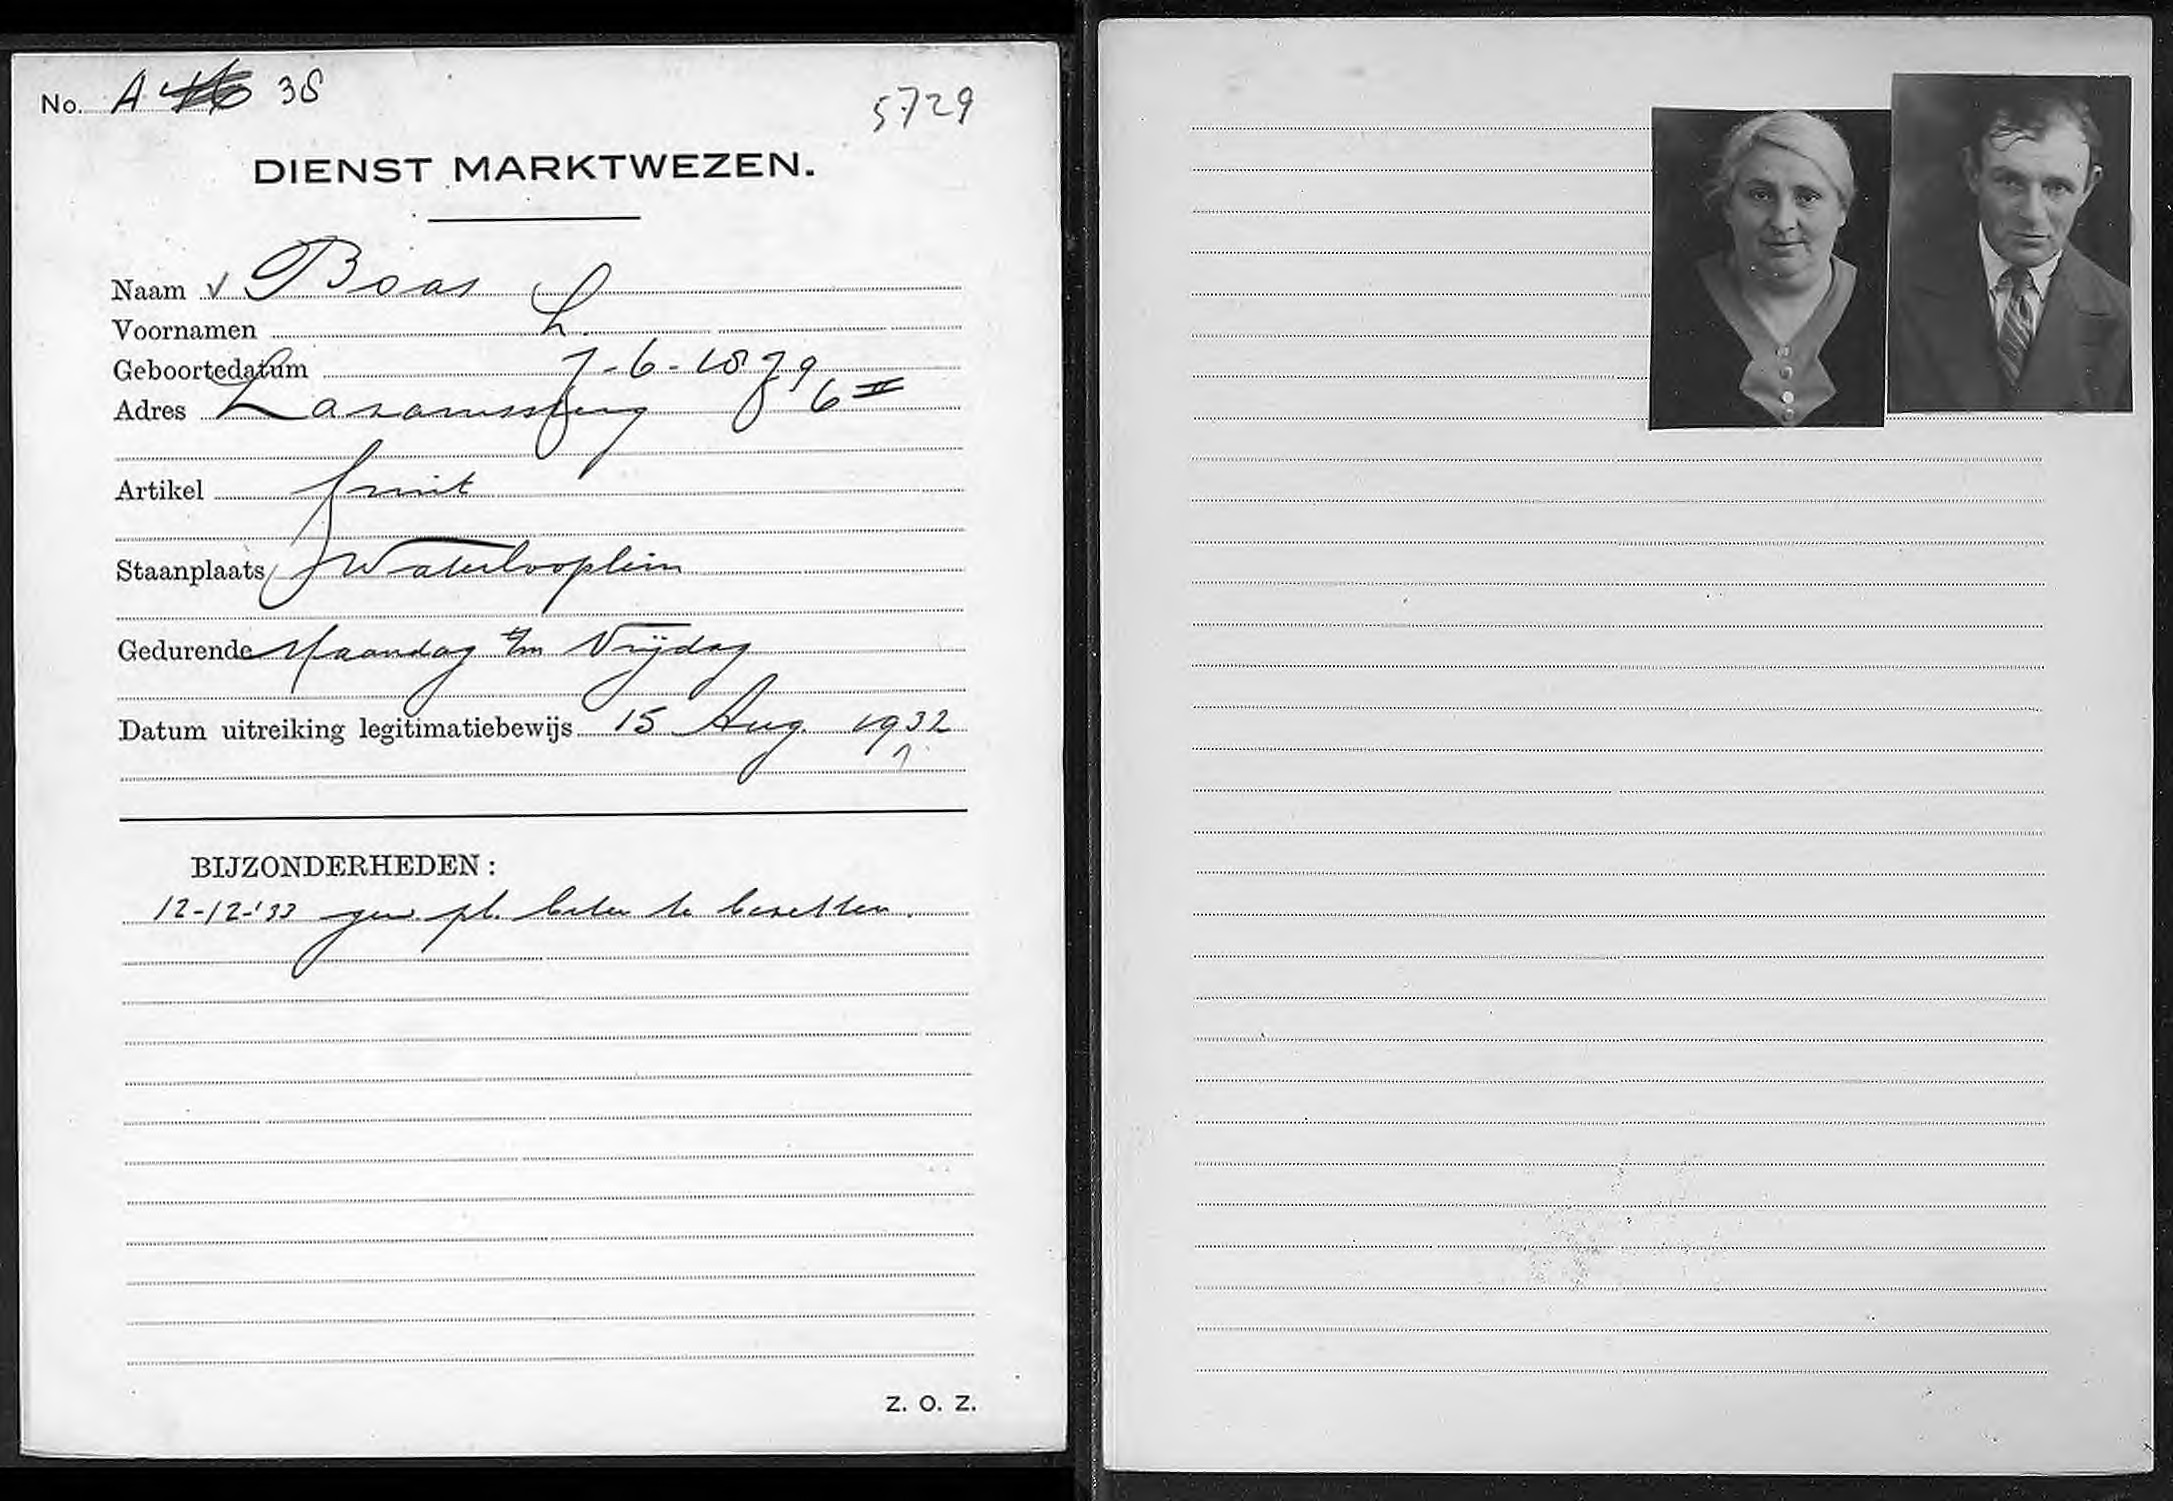 No. A 38
5729
DIENST MARKTWEZEN.
Naam Boas
Voornamen L.
Geboortedatum 7-6-1879
Adres Lazarussteeg 6 II
Artikel fruit
Staanplaats Waterlooplein
Gedurende Maandag t/m Vrijdag
Datum uitreiking legitimatiebewijs 15 Aug. 1932
BIJZONDERHEDEN:
12-12-'33 gew. pl. beter te bezetten.
Z. O. Z.